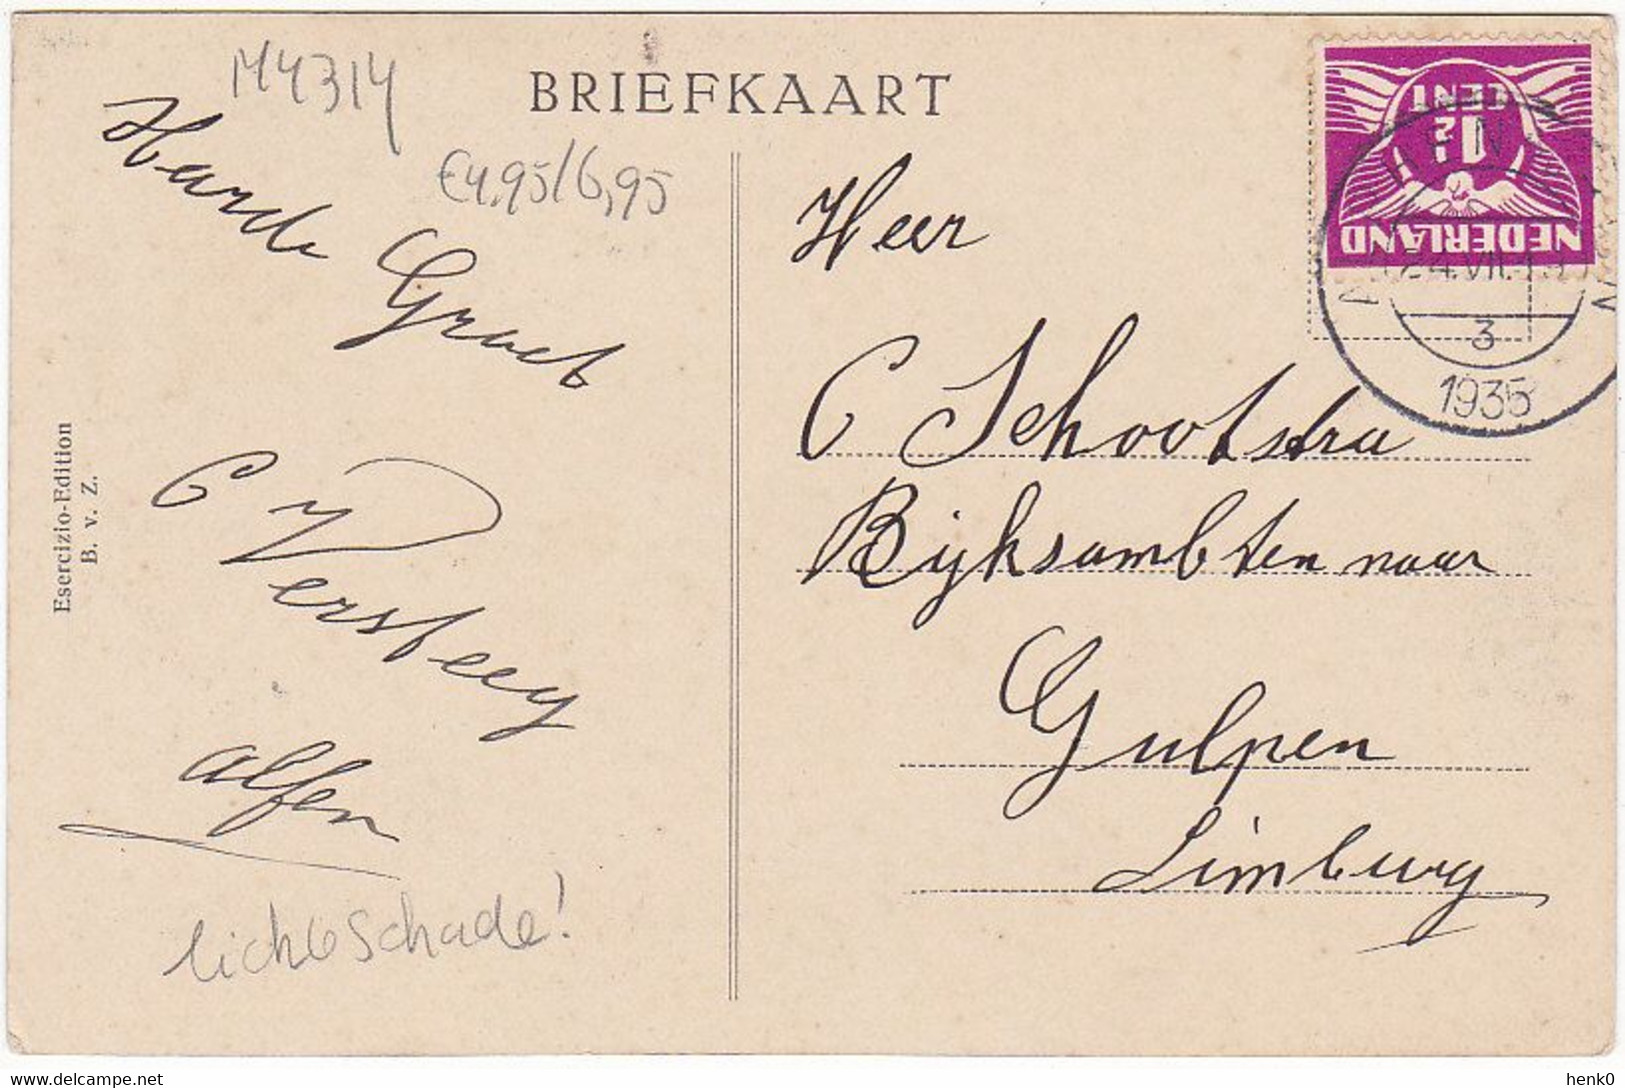 M4314
BRIEFKAART
€4,95/6,95
Harde Groet
C Versteeg
alfen
lichte schade!
Esercizio-Edition
B. v. Z.
Heer
C Schootstra
Rijksambtenaar
Gulpen
Limburg
1½
CENT
NEDERLAND
24.VII.
3
1935
delcampe.net
henk0